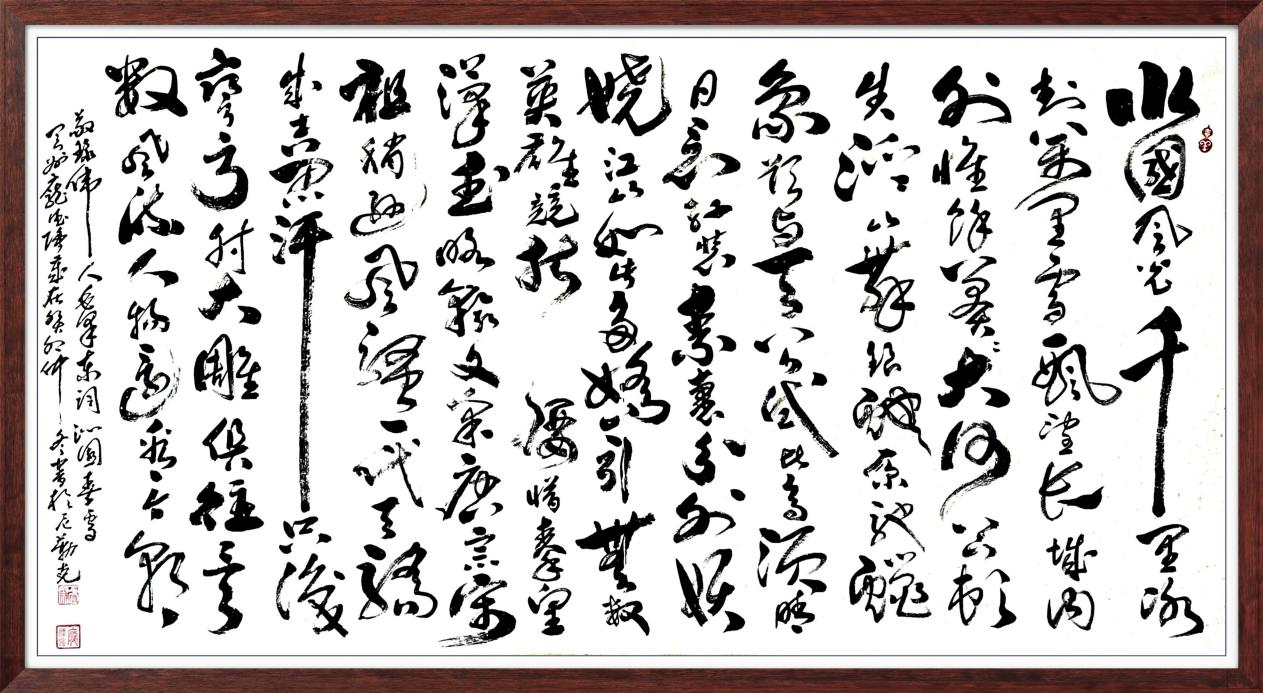 北國風光千里冰
封萬里雪飄望長城内
外惟餘莽莽大河上下頓
失滔滔山舞銀蛇原馳蠟
象欲與天公試比高須晴
日看紅裝素裹分外妖
嬈江山如此多嬌引無數
英雄競折腰惜秦皇
漢武略輸文采唐宗宋
祖稍遜風騷一代天驕
成吉思汗只識
彎弓射大雕俱往矣
數風流人物還看今朝
敬録偉人毛澤東詞沁園春雪
歲在癸卯仲冬書於尼勒克